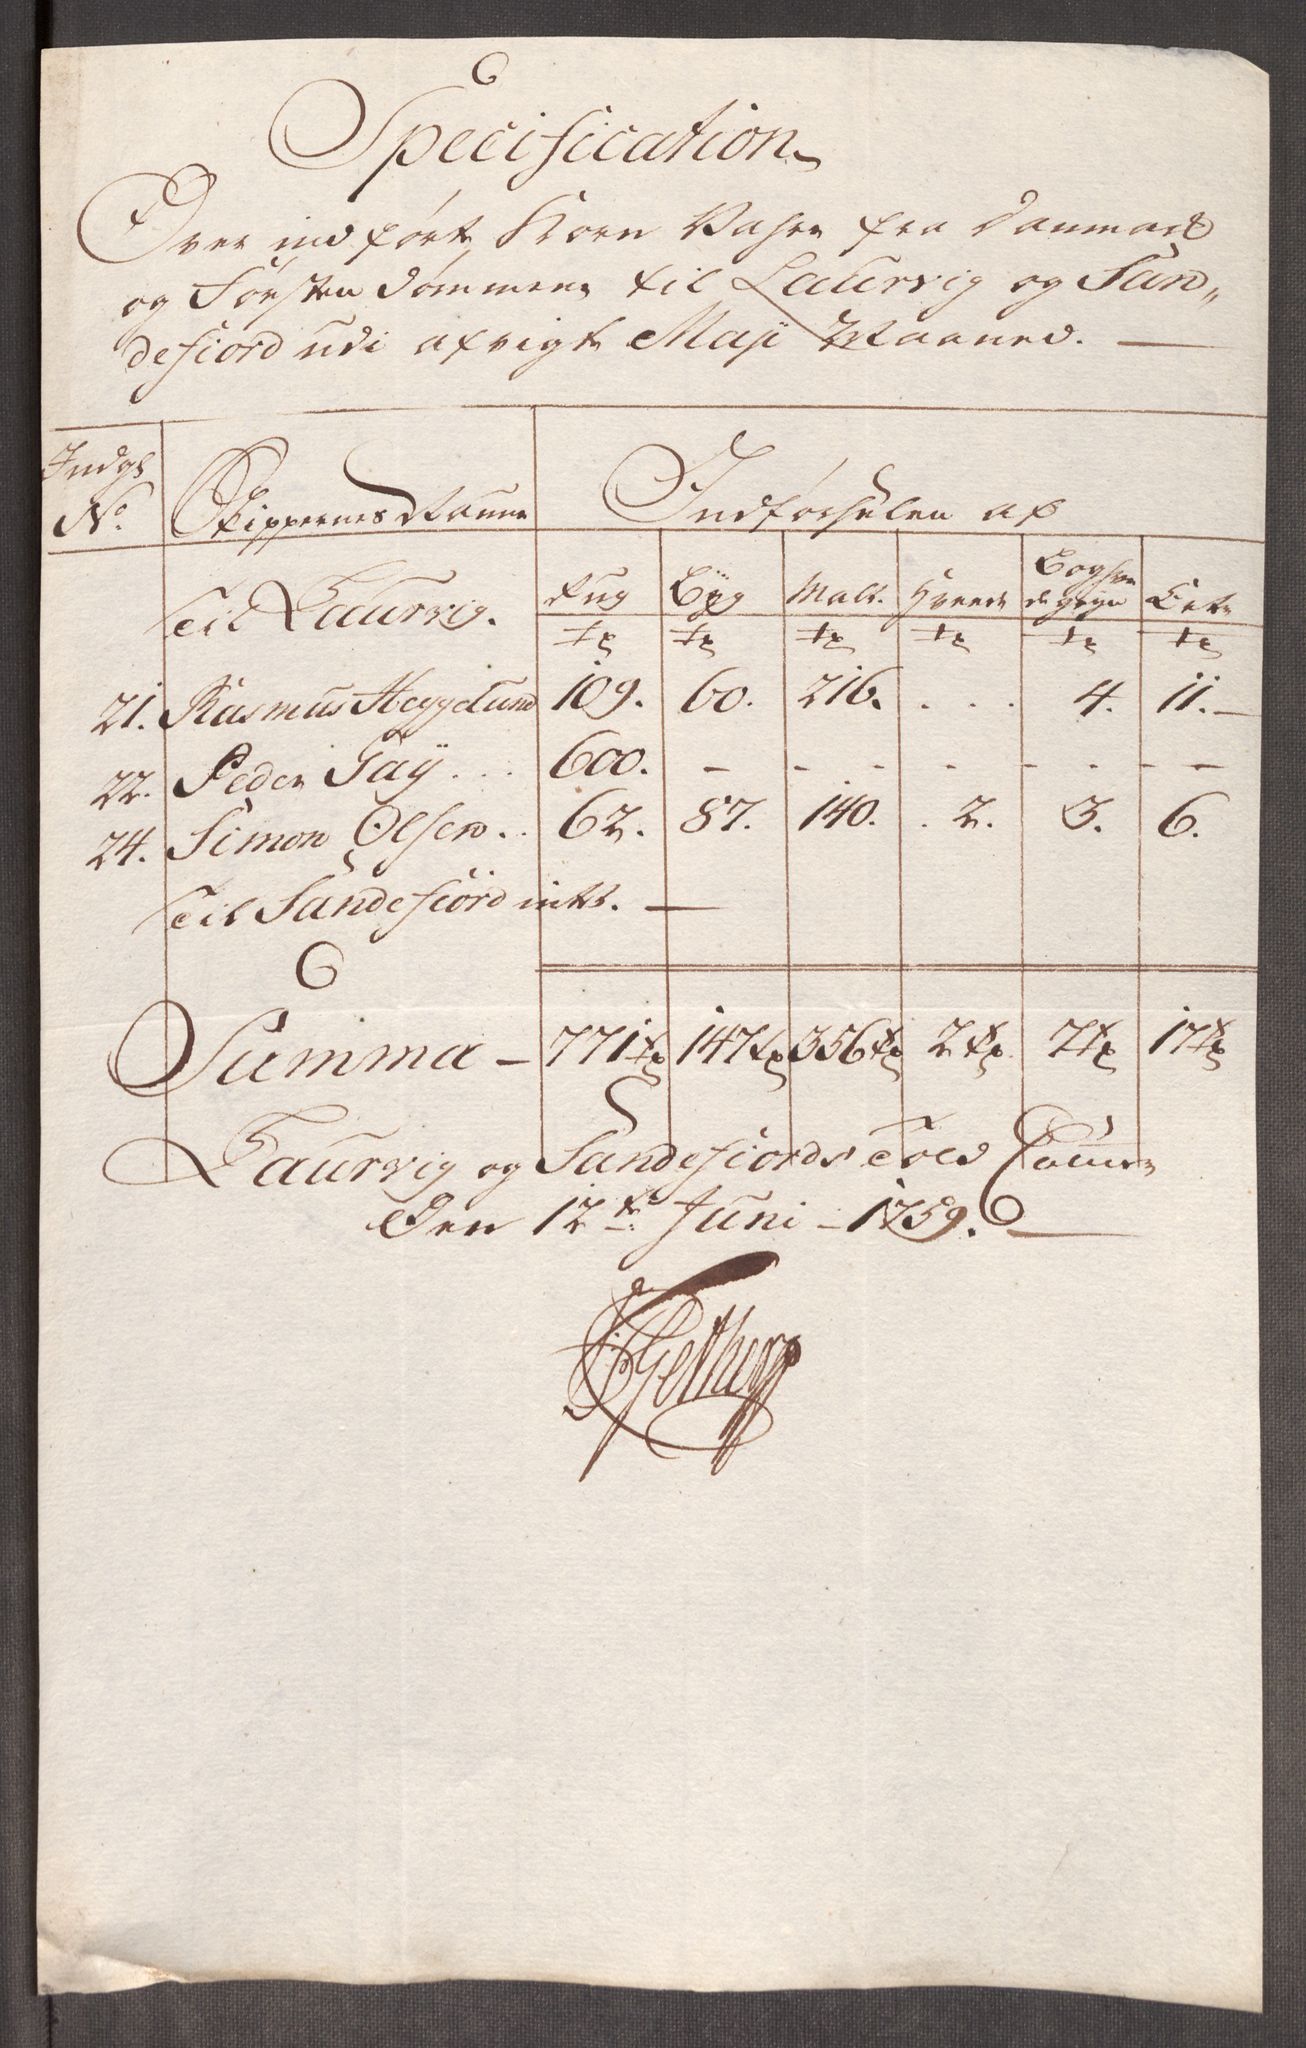 Specification
Over indført Korn Vahre fra Danmark
og Førstendømmene til Laurvig og San„
defiord udi afvigte Maji Maaned. —
Indgs No. Skippernes Naune Indførselen af
Til Laurvig. Rug Byg Malt. Hvede Boghve degryn Erter
Tr Tr Tr Tr Tr Tr
21. Rasmus Heggelund 109. 60. 216. . . . 4. 11. —
22. Peder Gay . . . 600. - - - - - - - -
24. Simon Olsen . . 62. 87. 140. . 2. 3. 6.
Til Sandefiord intet. —
Summa — 771 Tr 147 Tr 356 Tr 2 Tr 7 Tr 17 Tr
Laurvig og Sandefiords Told Camer
Den 12te Juni — 1759. —